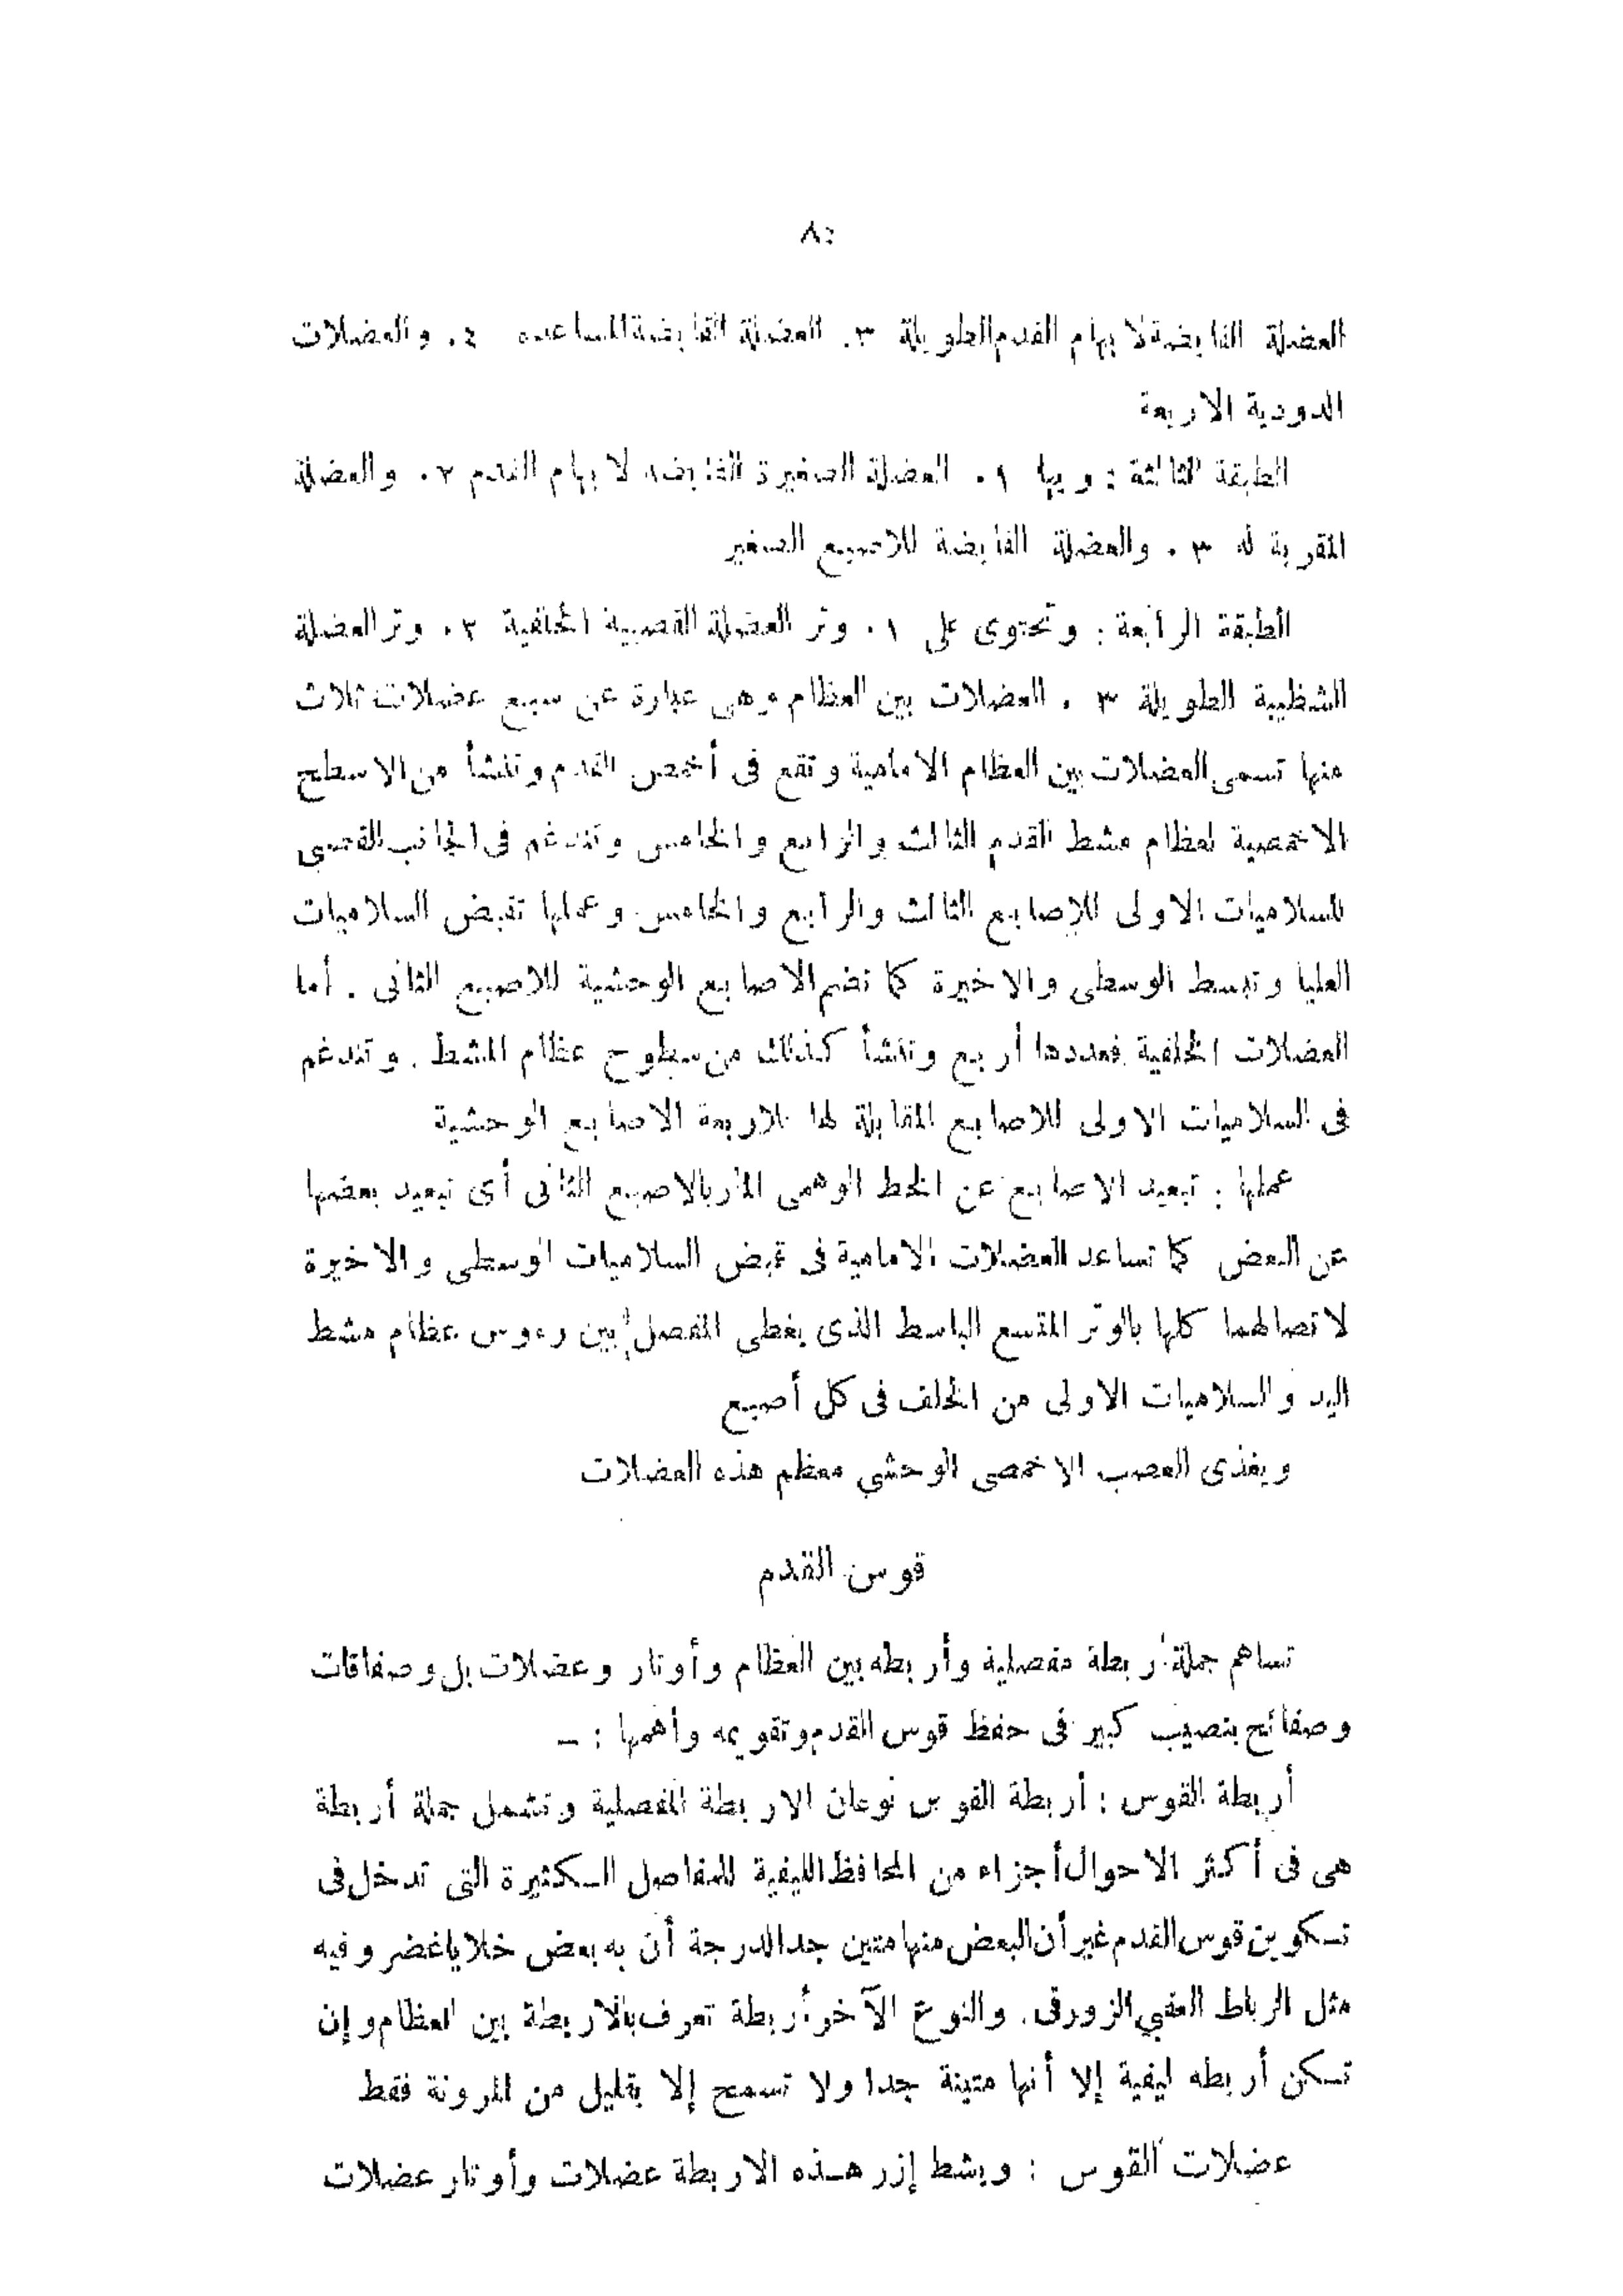 العضلة القابضة لابهام القدم الطويلة ٣. العضلة القابضة المساعده ٤. والعضلات
الدودية الاربعة
الطبقة الثالثة : وبها ١. العضلة الصغيرة القابضه لابهام القدم ٢. والعضلة
المقربة له ٣. والعضلة القابضة للاصبع الصغير
الطبقة الرابعة : وتحتوى على ١. وتر العضلة القصبية الخلفية ٢. وتر العضلة
الشظيية الطويلة ٣. العضلات بين العظام وهى عبارة عن سبع عضلات ثلاث
منها تسمى العضلات بين العظام الامامية وتقع فى أخمص القدم وتنشأ من الاسطح
الاخمصية لعظام مشط القدم الثالث والرابع والخامس وتندغم فى الجانب القصبى
للسلاميات الاولى للاصابع الثالث والرابع والخامس وعملها تقبض السلاميات
العليا وتبسط الوسطى والاخيرة كما تضم الاصابع الوحشية للاصبع الثانى . أما
العضلات الخلفية فعددها أربع وتنشأ كذلك من سطوح عظام المشط . وتندغم
فى السلاميات الاولى للاصابع المقابلة لها للاربعة الاصابع الوحشية
عملها : تبعيد الاصابع عن الخط الوهمى المار بالاصبع الثانى أى تبعيد بعضها
عن البعض كما تساعد العضلات الامامية فى قبض السلاميات الوسطى والاخيرة
لاتصالهما كلها بالوتر المتسع الباسط الذى يغطى المفصل بين رءوس عظام مشط
اليد والسلاميات الاولى من الخلف فى كل أصبع
ويغذى العصب الاخمصى الوحشي معظم هذه العضلات
قوس القدم
تساهم جملة أربطة مفصلية وأربطه بين العظام وأوتار وعضلات بل وصفاقات
وصفائح بنصيب كبير فى حفظ قوس القدم وتقويمه وأهمها : –
أربطة القوس : أربطة القوس نوعان الاربطة المفصلية وتشمل جملة أربطة
هى فى أكثر الاحوال أجزاء من المحافظ الليفية للمفاصل الكثيرة التى تدخل فى
تكوين قوس القدم غير أن البعض منها متين جدا لدرجة أن به بعض خلايا غضروفيه
مثل الرباط العقبي الزورقى . والنوع الآخر أربطة تعرف بالاربطة بين العظام وإن
تكن أربطه ليفية إلا أنها متينة جدا ولا تسمح إلا بقليل من المرونة فقط
عضلات القوس : ويشط إزر هذه الاربطة عضلات وأوتار عضلات